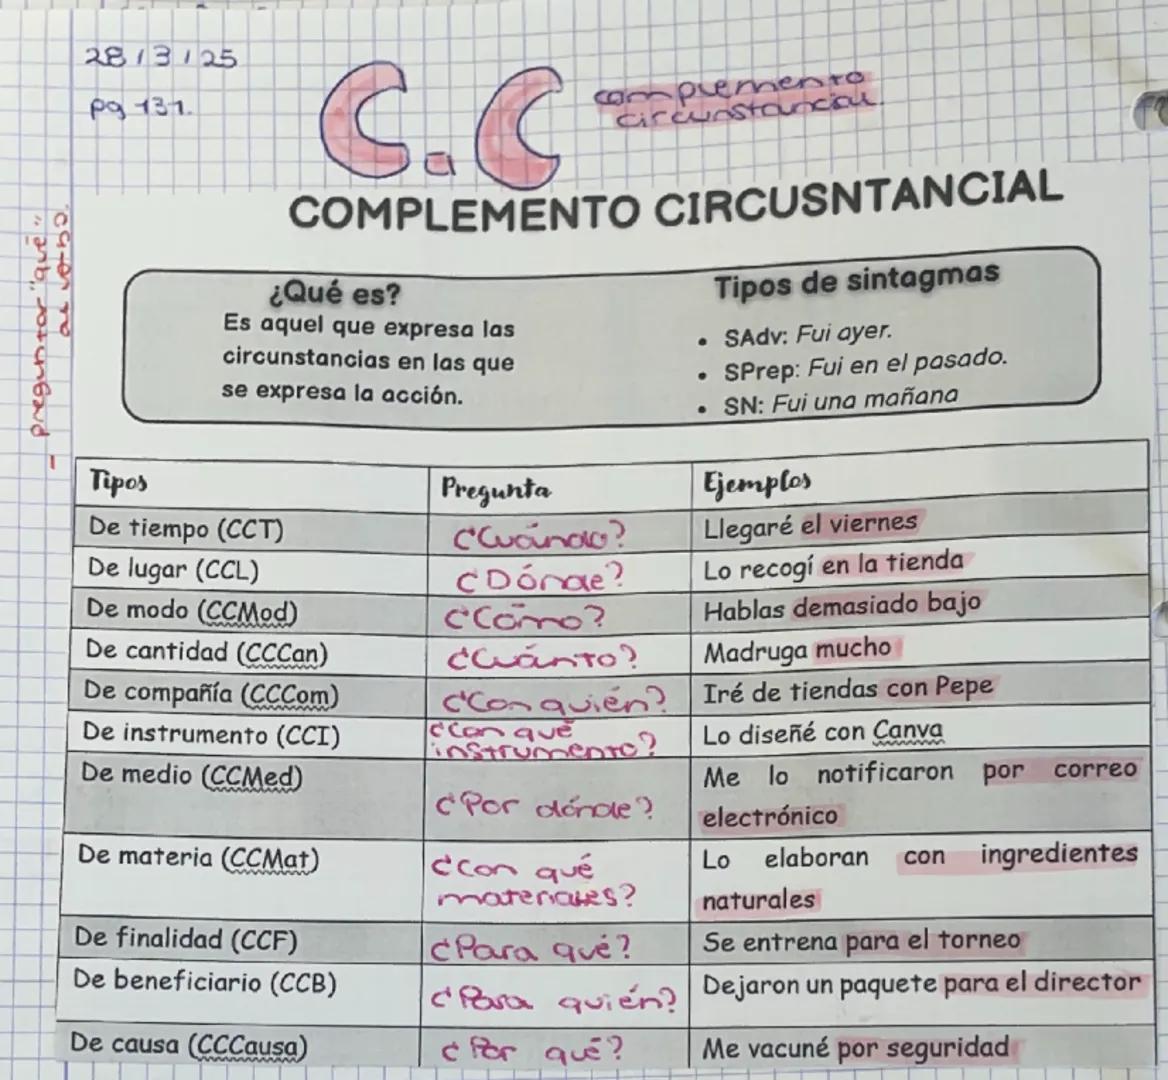 28/3/25
pg 131.
C.C
complemento
circunstancial.
- preguntar "qué"
al verbo.
COMPLEMENTO CIRCUSNTANCIAL
¿Qué es?
Es aquel que expresa las
circunstancias en las que
se expresa la acción.
Tipos de sintagmas
• SAdv: Fui ayer.
• SPrep: Fui en el pasado.
• SN: Fui una mañana
Tipos Pregunta Ejemplos
De tiempo (CCT) ¿Cuándo? Llegaré el viernes
De lugar (CCL) ¿Dónde? Lo recogí en la tienda
De modo (CCMod) ¿Cómo? Hablas demasiado bajo
De cantidad (CCCan) ¿Cuánto? Madruga mucho
De compañía (CCCom) ¿Con quién? Iré de tiendas con Pepe
De instrumento (CCI) ¿Con qué
instrumento? Lo diseñé con Canva
De medio (CCMed) ¿Por dónde? Me lo notificaron por correo
electrónico
De materia (CCMat) ¿Con qué
materiales? Lo elaboran con ingredientes
naturales
De finalidad (CCF) ¿Para qué? Se entrena para el torneo
De beneficiario (CCB) ¿Para quién? Dejaron un paquete para el director
De causa (CCCausa) ¿Por qué? Me vacuné por seguridad